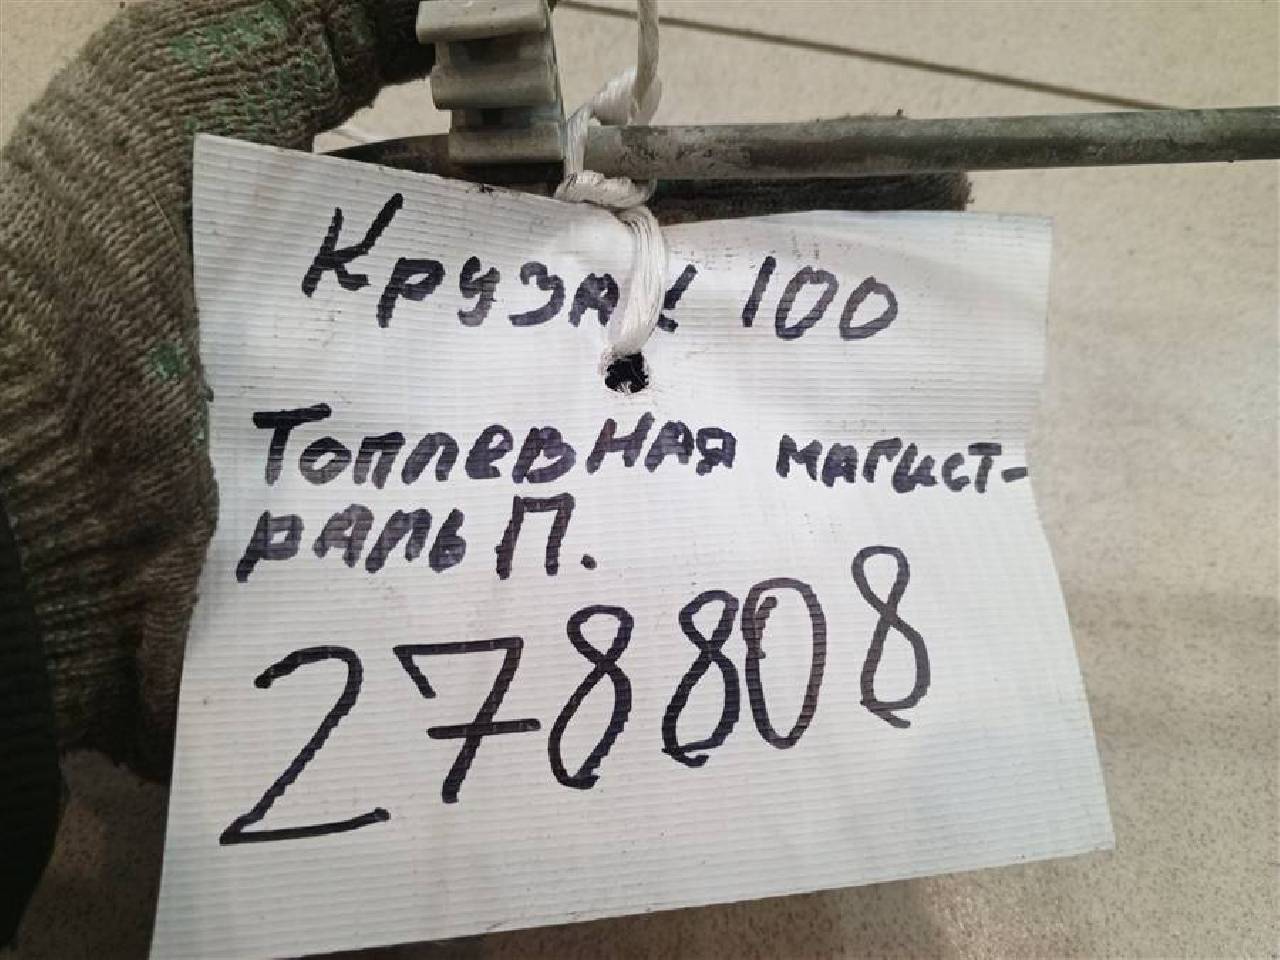 Крузак 100
Топлевная магист-
раль П.
278808